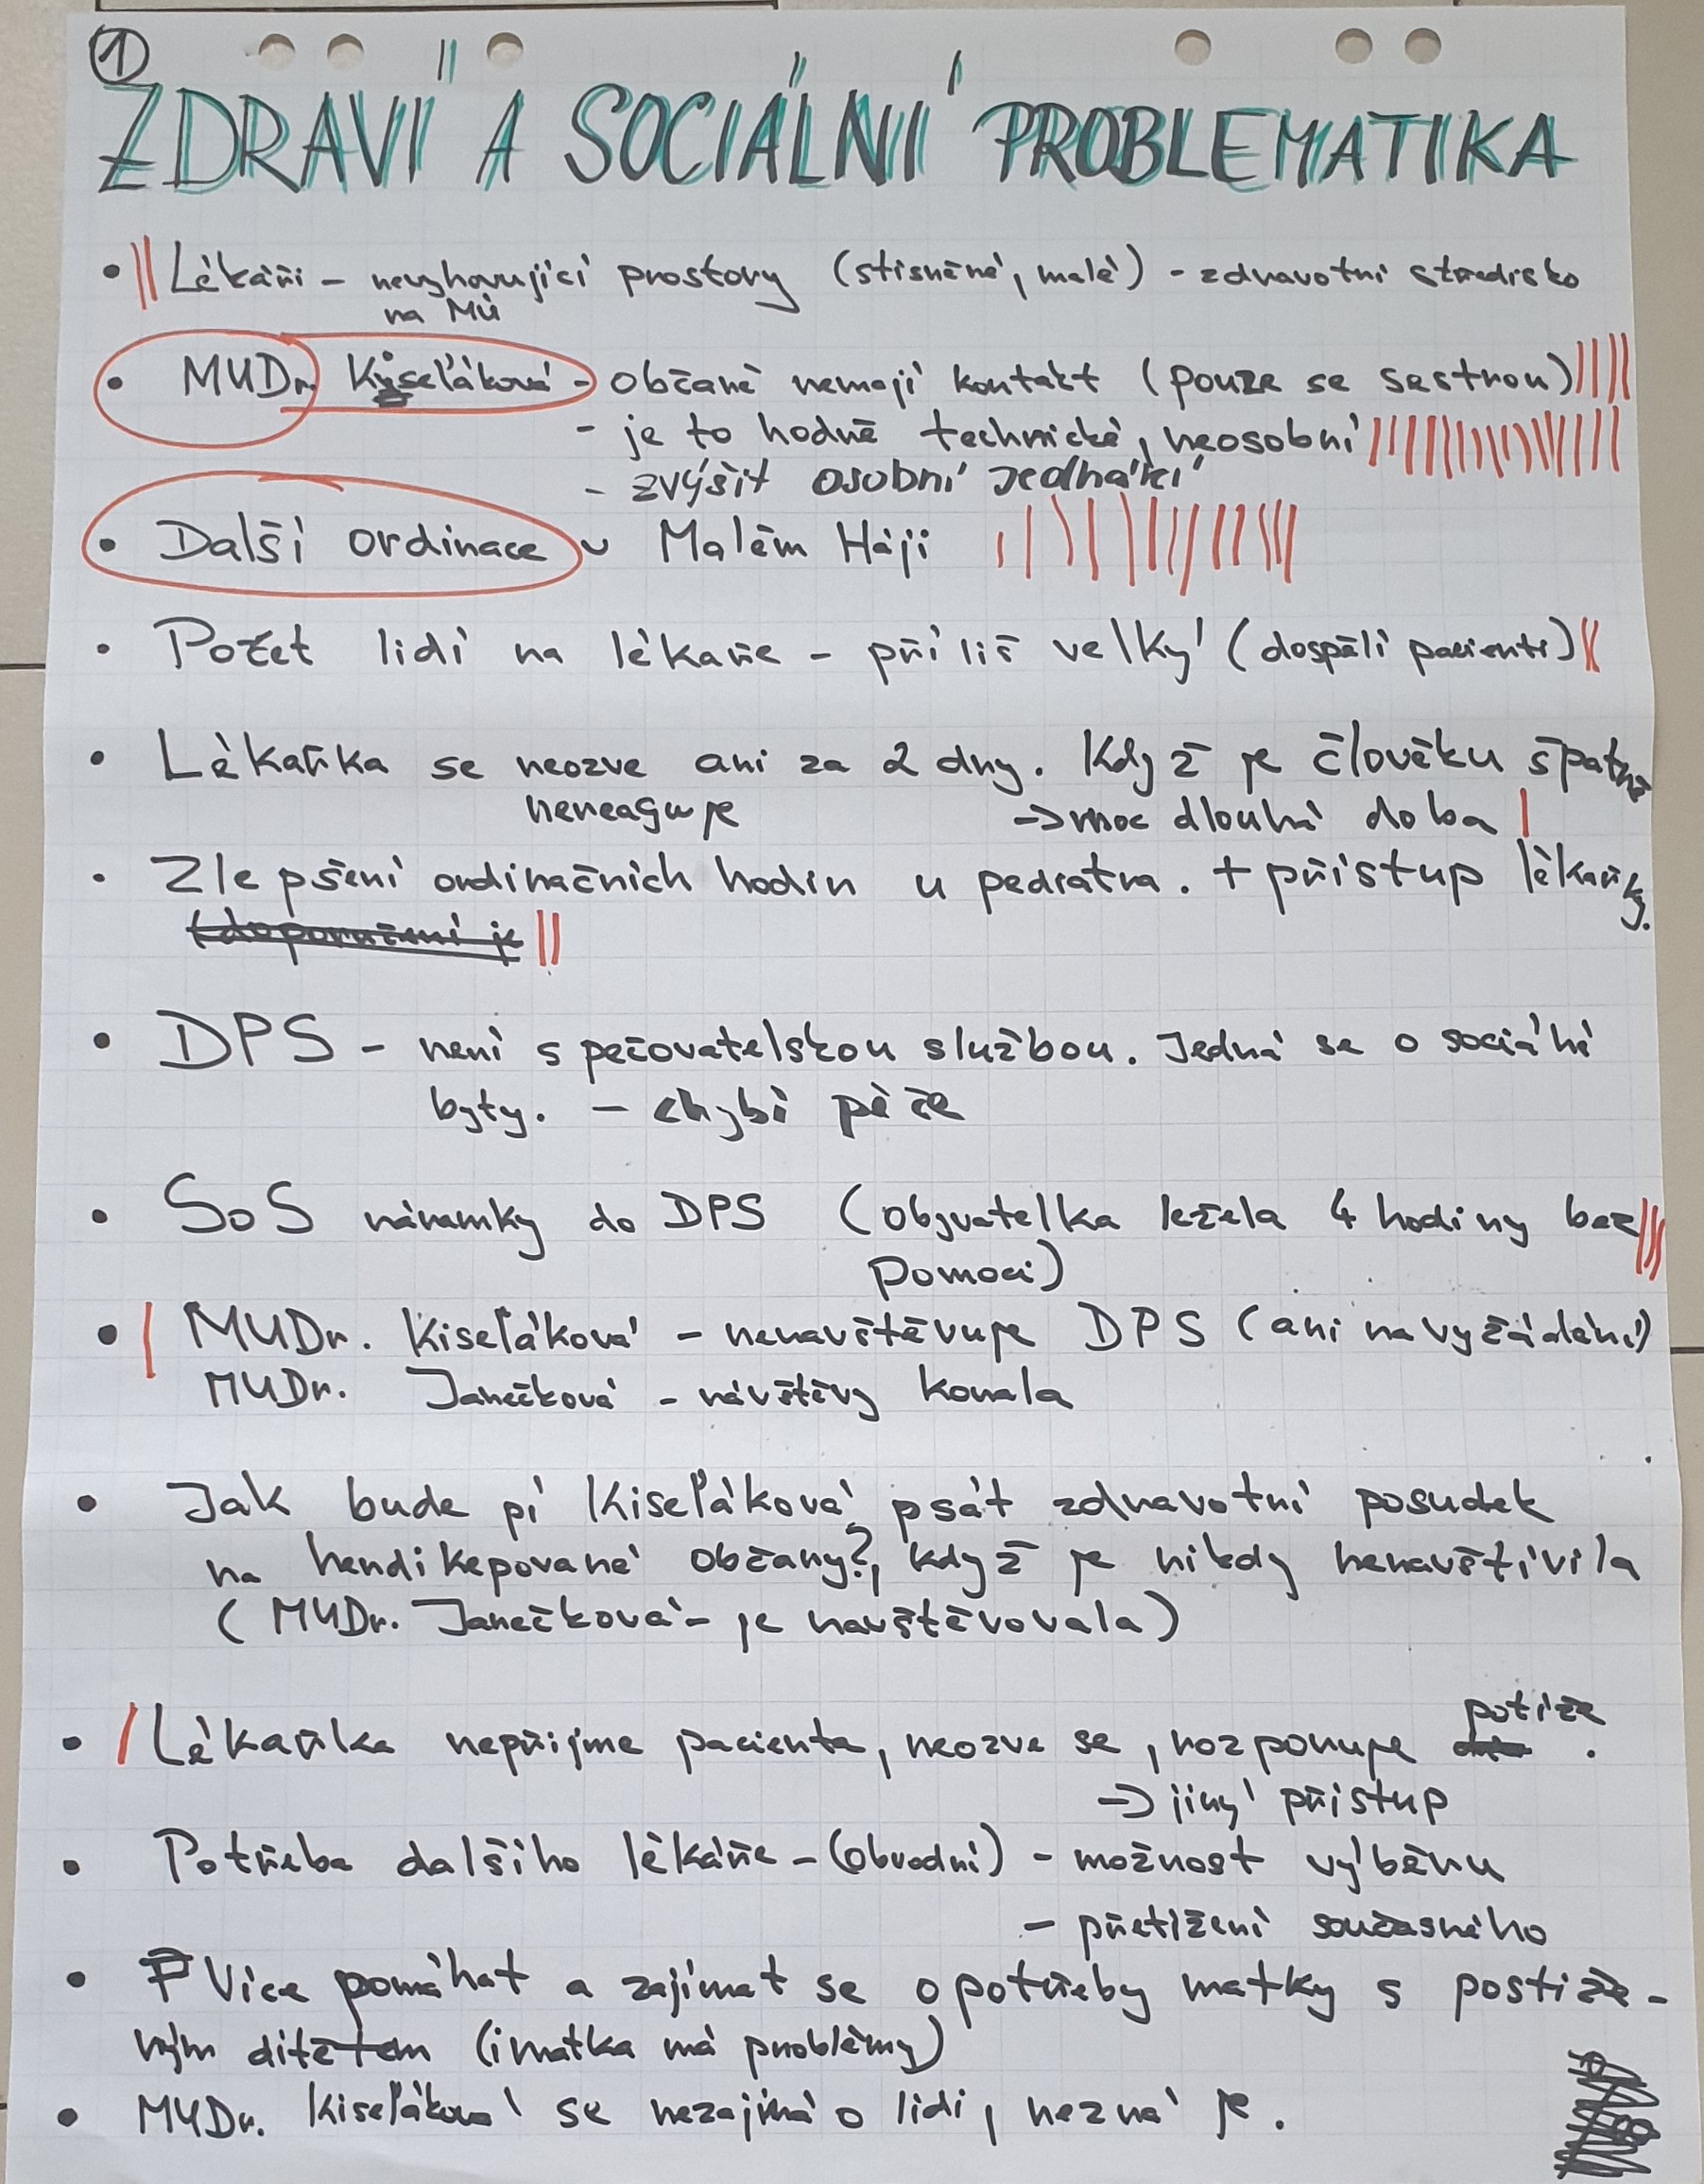 1
ZDRAVÍ A SOCIÁLNÍ PROBLEMATIKA
• Lékáři - nevyhovující prostory (stísněné, malé) - zdravotní středisko
na MÚ
• MUDr. Kiseľáková - občané nemají kontakt (pouze se sestrou)
- je to hodně technické, neosobní
- zvýšit osobní jednání
• Další ordinace v Malém Háji
• Počet lidí na lékaře - příliš velký (dospělí pacienti)
• Lékařka se neozve ani za 2 dny. Když je člověku špatně
nereaguje → moc dlouhá doba
• Zlepšení ordinačních hodin u pediatra. + přístup lékařky.
(doporučení je
• DPS - není s pečovatelskou službou. Jedná se o sociální
byty. - chybí péče
• SoS náramky do DPS (obyvatelka ležela 4 hodiny bez
pomoci)
• MUDr. Kiseľáková - nenavštěvuje DPS (ani na vyžádání)
MUDr. Janečková - návštěvy konala
• Jak bude pí Kiseľáková psát zdravotní posudek
na hendikepované občany?, když je nikdy nenavštívila
(MUDr. Janečková - je navštěvovala)
• Lékařka nepřijme pacienta, neozve se, rozporuje potíže.
→ jiný přístup
• Potřeba dalšího lékáře - (obvodní) - možnost výběru
- přetížení současného
• Více pomáhat a zajímat se o potřeby matky s postiže-
ným dítětem (i matka má problémy)
• MUDr. Kiseľáková se nezajímá o lidi, nezná je.